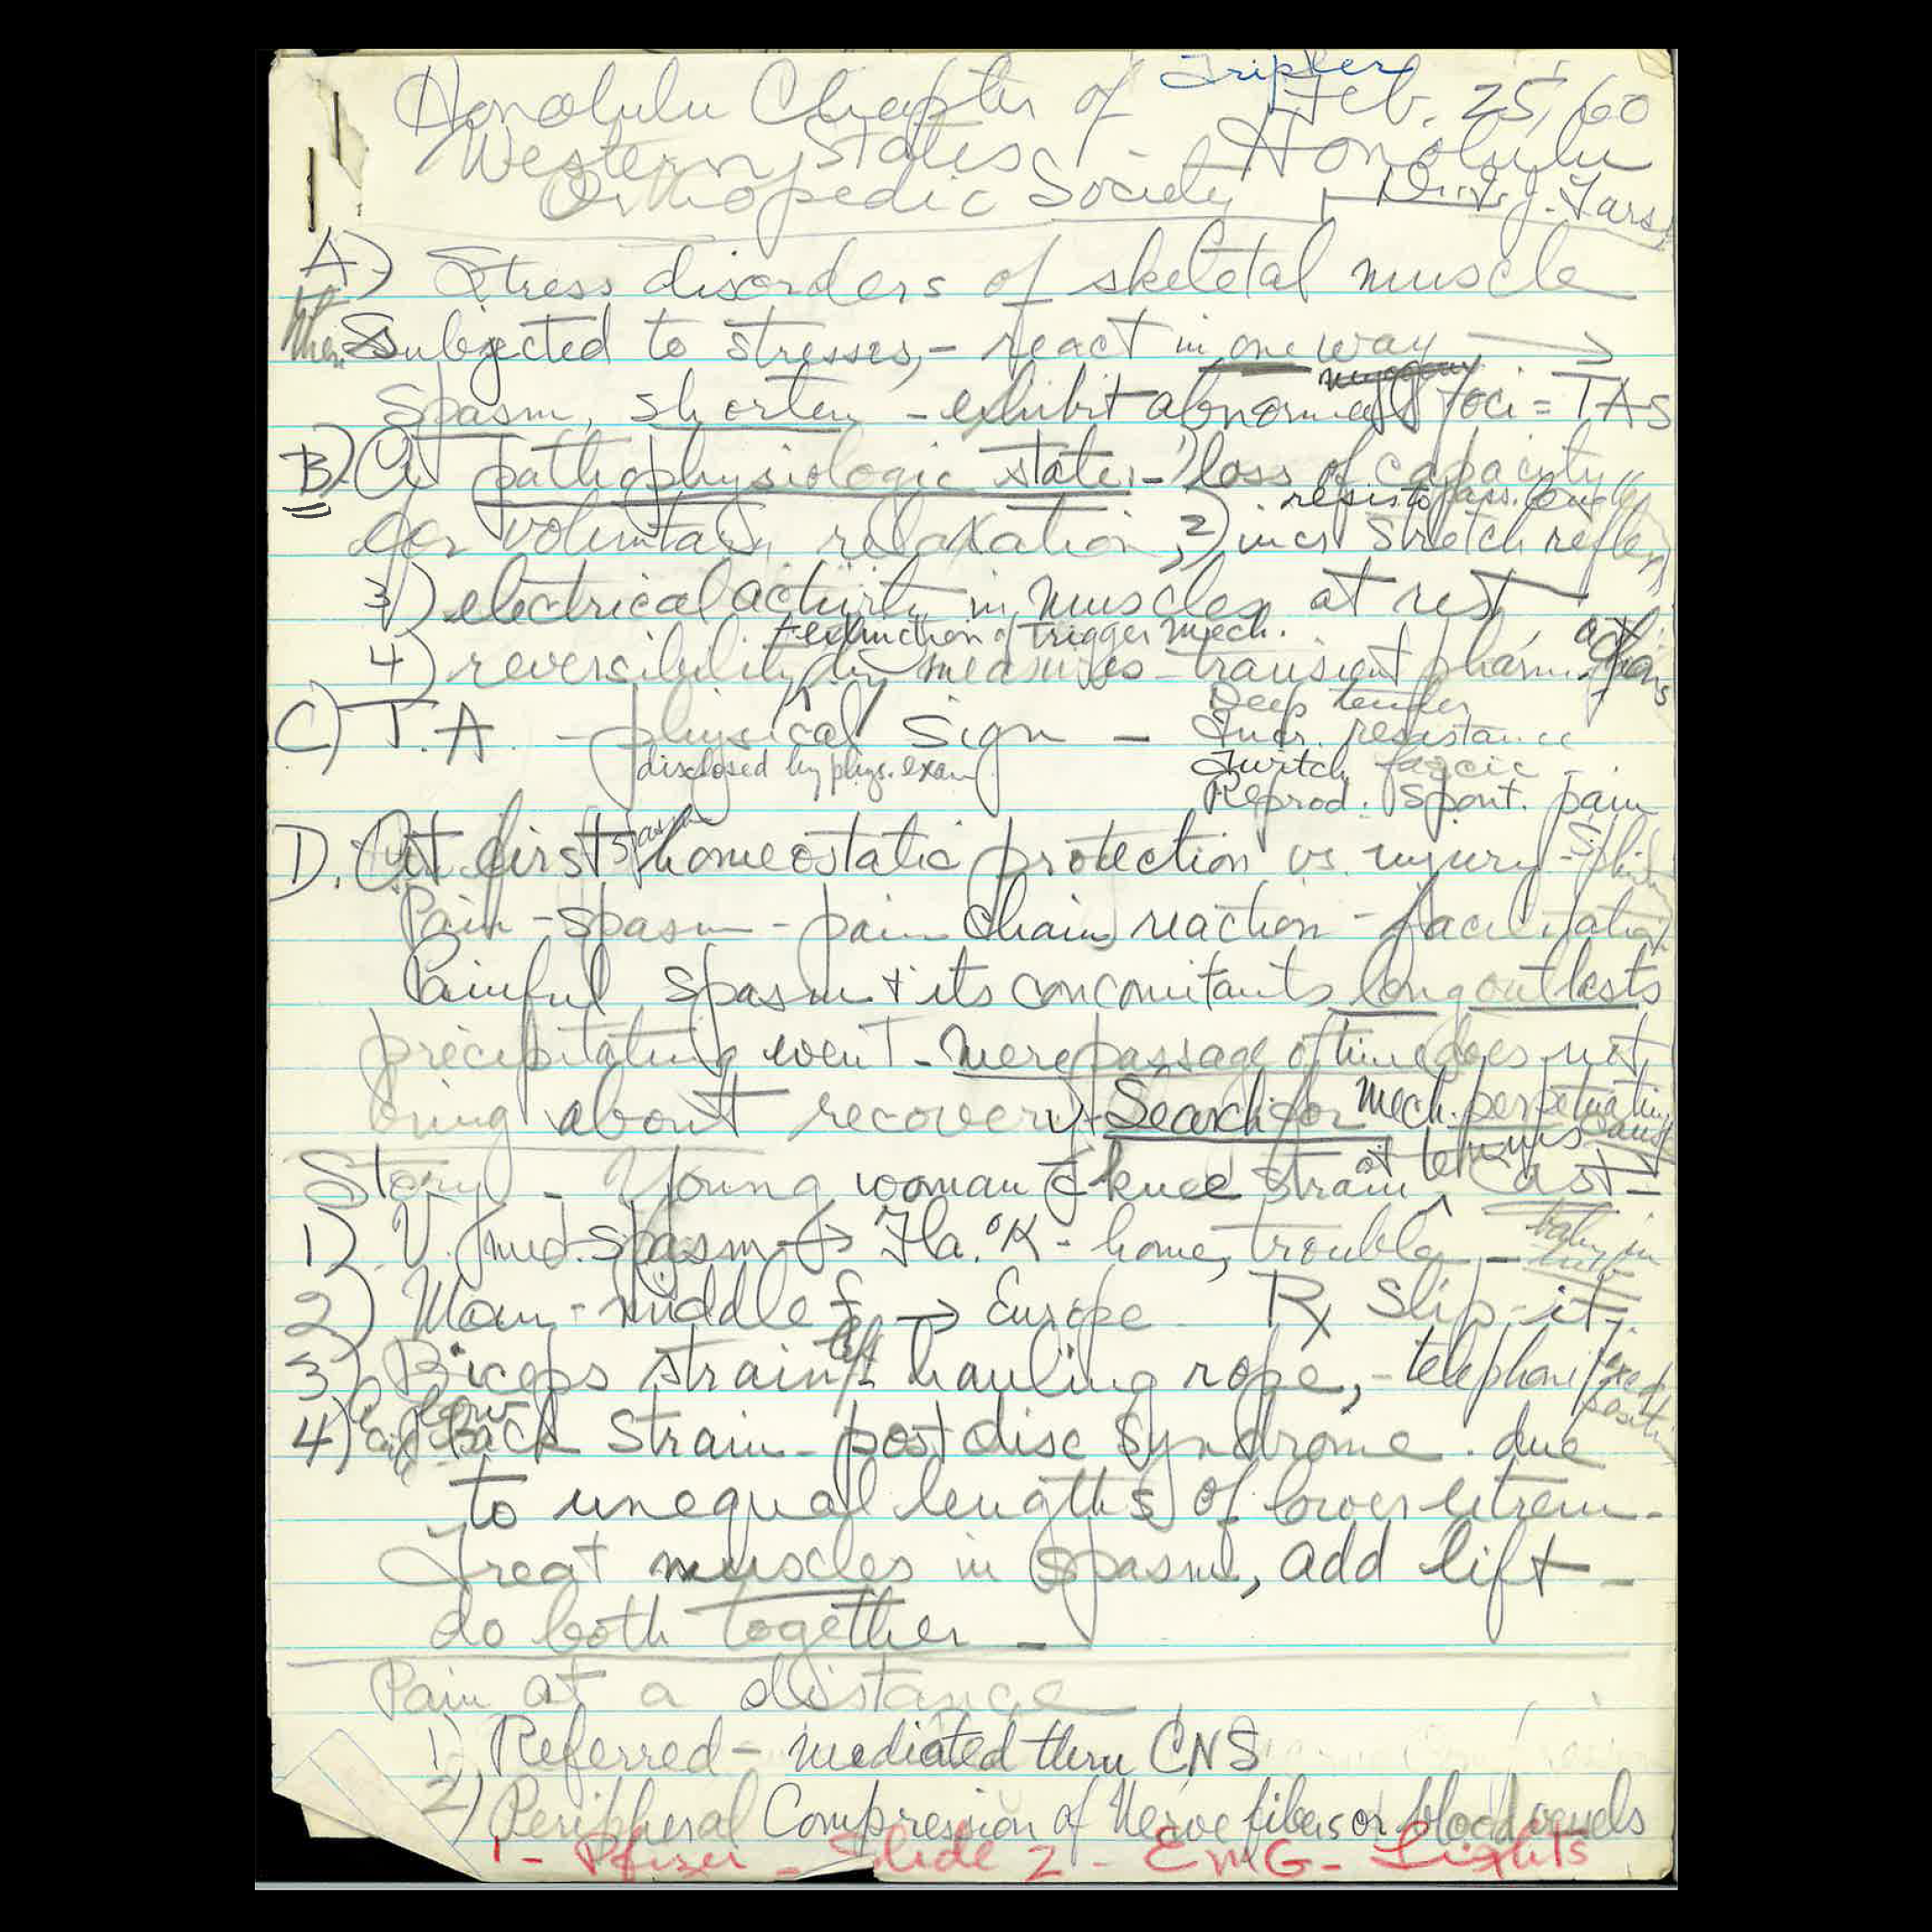 Tripler
Honolulu Chapter of Feb. 25, 60
Western States - Honolulu
Orthopedic Society Dr. J.
A) Stress disorders of skeletal muscle
Subjected to stresses, - react in one way →
Spasm, shorten - exhibit abnormal foci = TAS
B) A pathophysiologic state: - 1) loss of capacity
resis to pass.
for voluntary relaxation, 2) incr stretch reflexes
3) electrical activity in muscles at rest
extinction of trigger mech.
4) reversibility by measures - transient pharm. actions
C) T.A. - physical sign - Deep tender
Incr. resistance
disclosed by phys. exam Twitch, fascic -
Reprod. spont. pain
D. At first spasm homeostatic protection vs. injury -
Pain - spasm - pain chain reaction - facilitation
Painful spasm + its concomitants long outlasts
precipitating event - mere passage of time does not
bring about recovery. Search for mech. perpetuating
at tennis
Story - Young woman c̄ knee strain ^ Cast -
1) V. med. spasm → Fla. OK - home, trouble - baby in
2) Mom - middle f → Europe Rx Slip-it.
3) Biceps strain left hauling rope, - telephone
low
4) Back strain - post disc syndrome. due
to unequal lengths of lower extrem.
Treat muscles in spasm, add lift -
do both together -
Pain at a distance
1) Referred - mediated thru CNS
2) Peripheral Compression of Nerve fibers or blood vessels
1 - Pfizer - Slide 2 - EMG - Lights